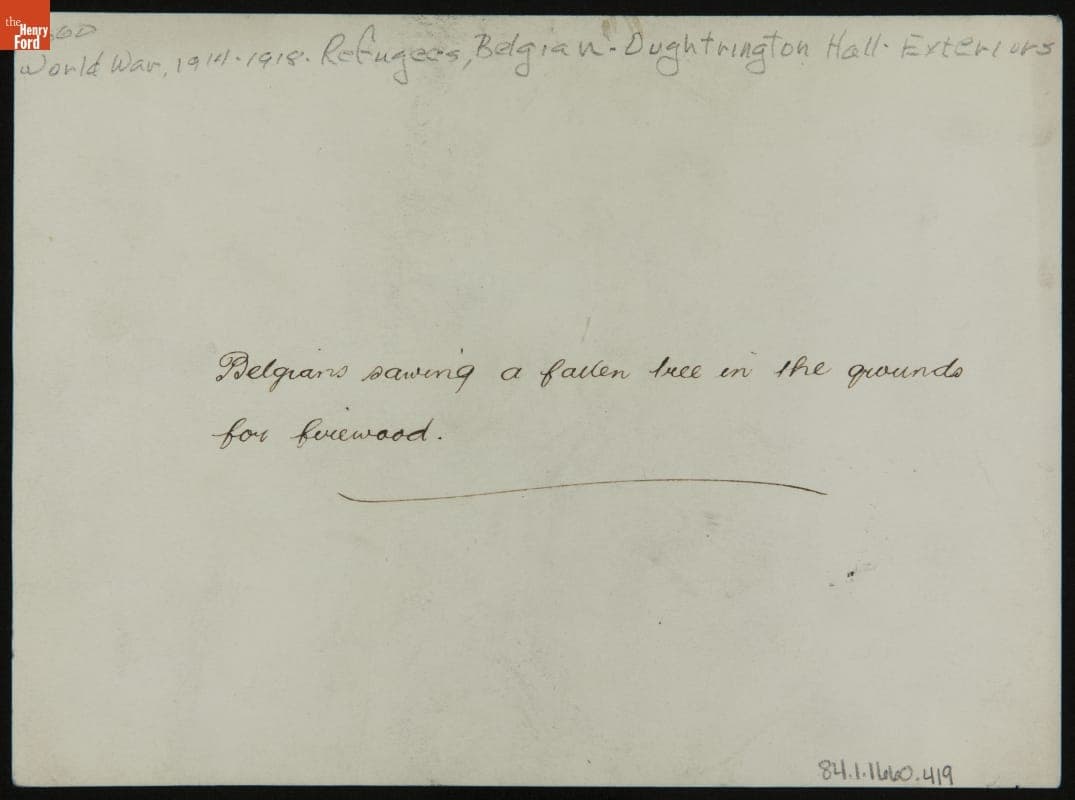 the Henry Ford
World War, 1914-1918. Refugees, Belgian - Oughtrington Hall - Exteriors
Belgians sawing a fallen tree in the grounds
for firewood.
84.1.1660.419